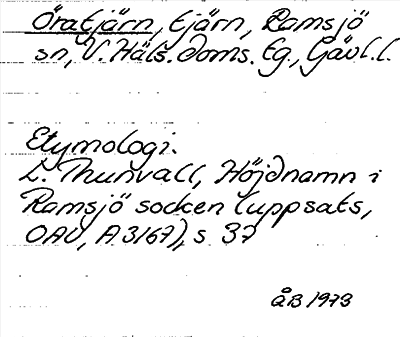 Öratjärn, tjärn, Ramsjö
sn, V. Häls. doms. tg., Gävl.l.
Etymologi.
L. Thunvall, Höjdnamn i
Ramsjö socken (uppsats,
OAU, A 3167), s 37
ÅB 1973